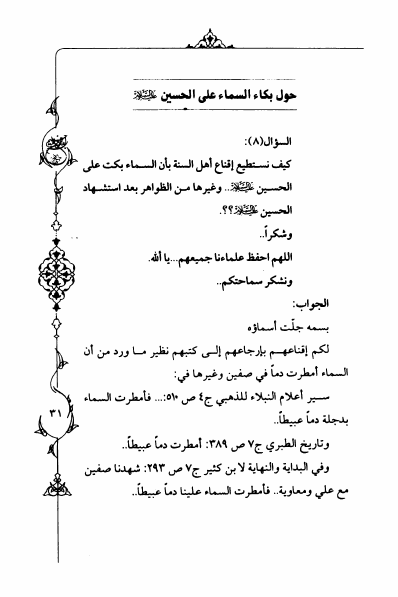 حول بكاء السماء على الحسين عليه السلام
السؤال(٨):
كيف نستطيع إقناع أهل السنة بأن السماء بكت على
الحسين عليه السلام.. وغيرها من الظواهر بعد استشهاد
الحسين عليه السلام؟؟.
وشكراً..
اللهم احفظ علماءنا جميعهم...يا الله.
ونشكر سماحتكم..
الجواب:
بسمه جلّت أسماؤه
لكم إقناعهم بإرجاعهم إلى كتبهم نظير ما ورد من أن
السماء أمطرت دماً في صفين وغيرها في:
سير أعلام النبلاء للذهبي ج٤ ص ٥١٠:... فأمطرت السماء
بدجلة دماً عبيطاً..
وتاريخ الطبري ج٧ ص ٣٨٩: أمطرت دماً عبيطاً..
وفي البداية والنهاية لابن كثير ج٧ ص ٢٩٣: شهدنا صفين
مع علي ومعاوية.. فأمطرت السماء علينا دماً عبيطاً..
٣١